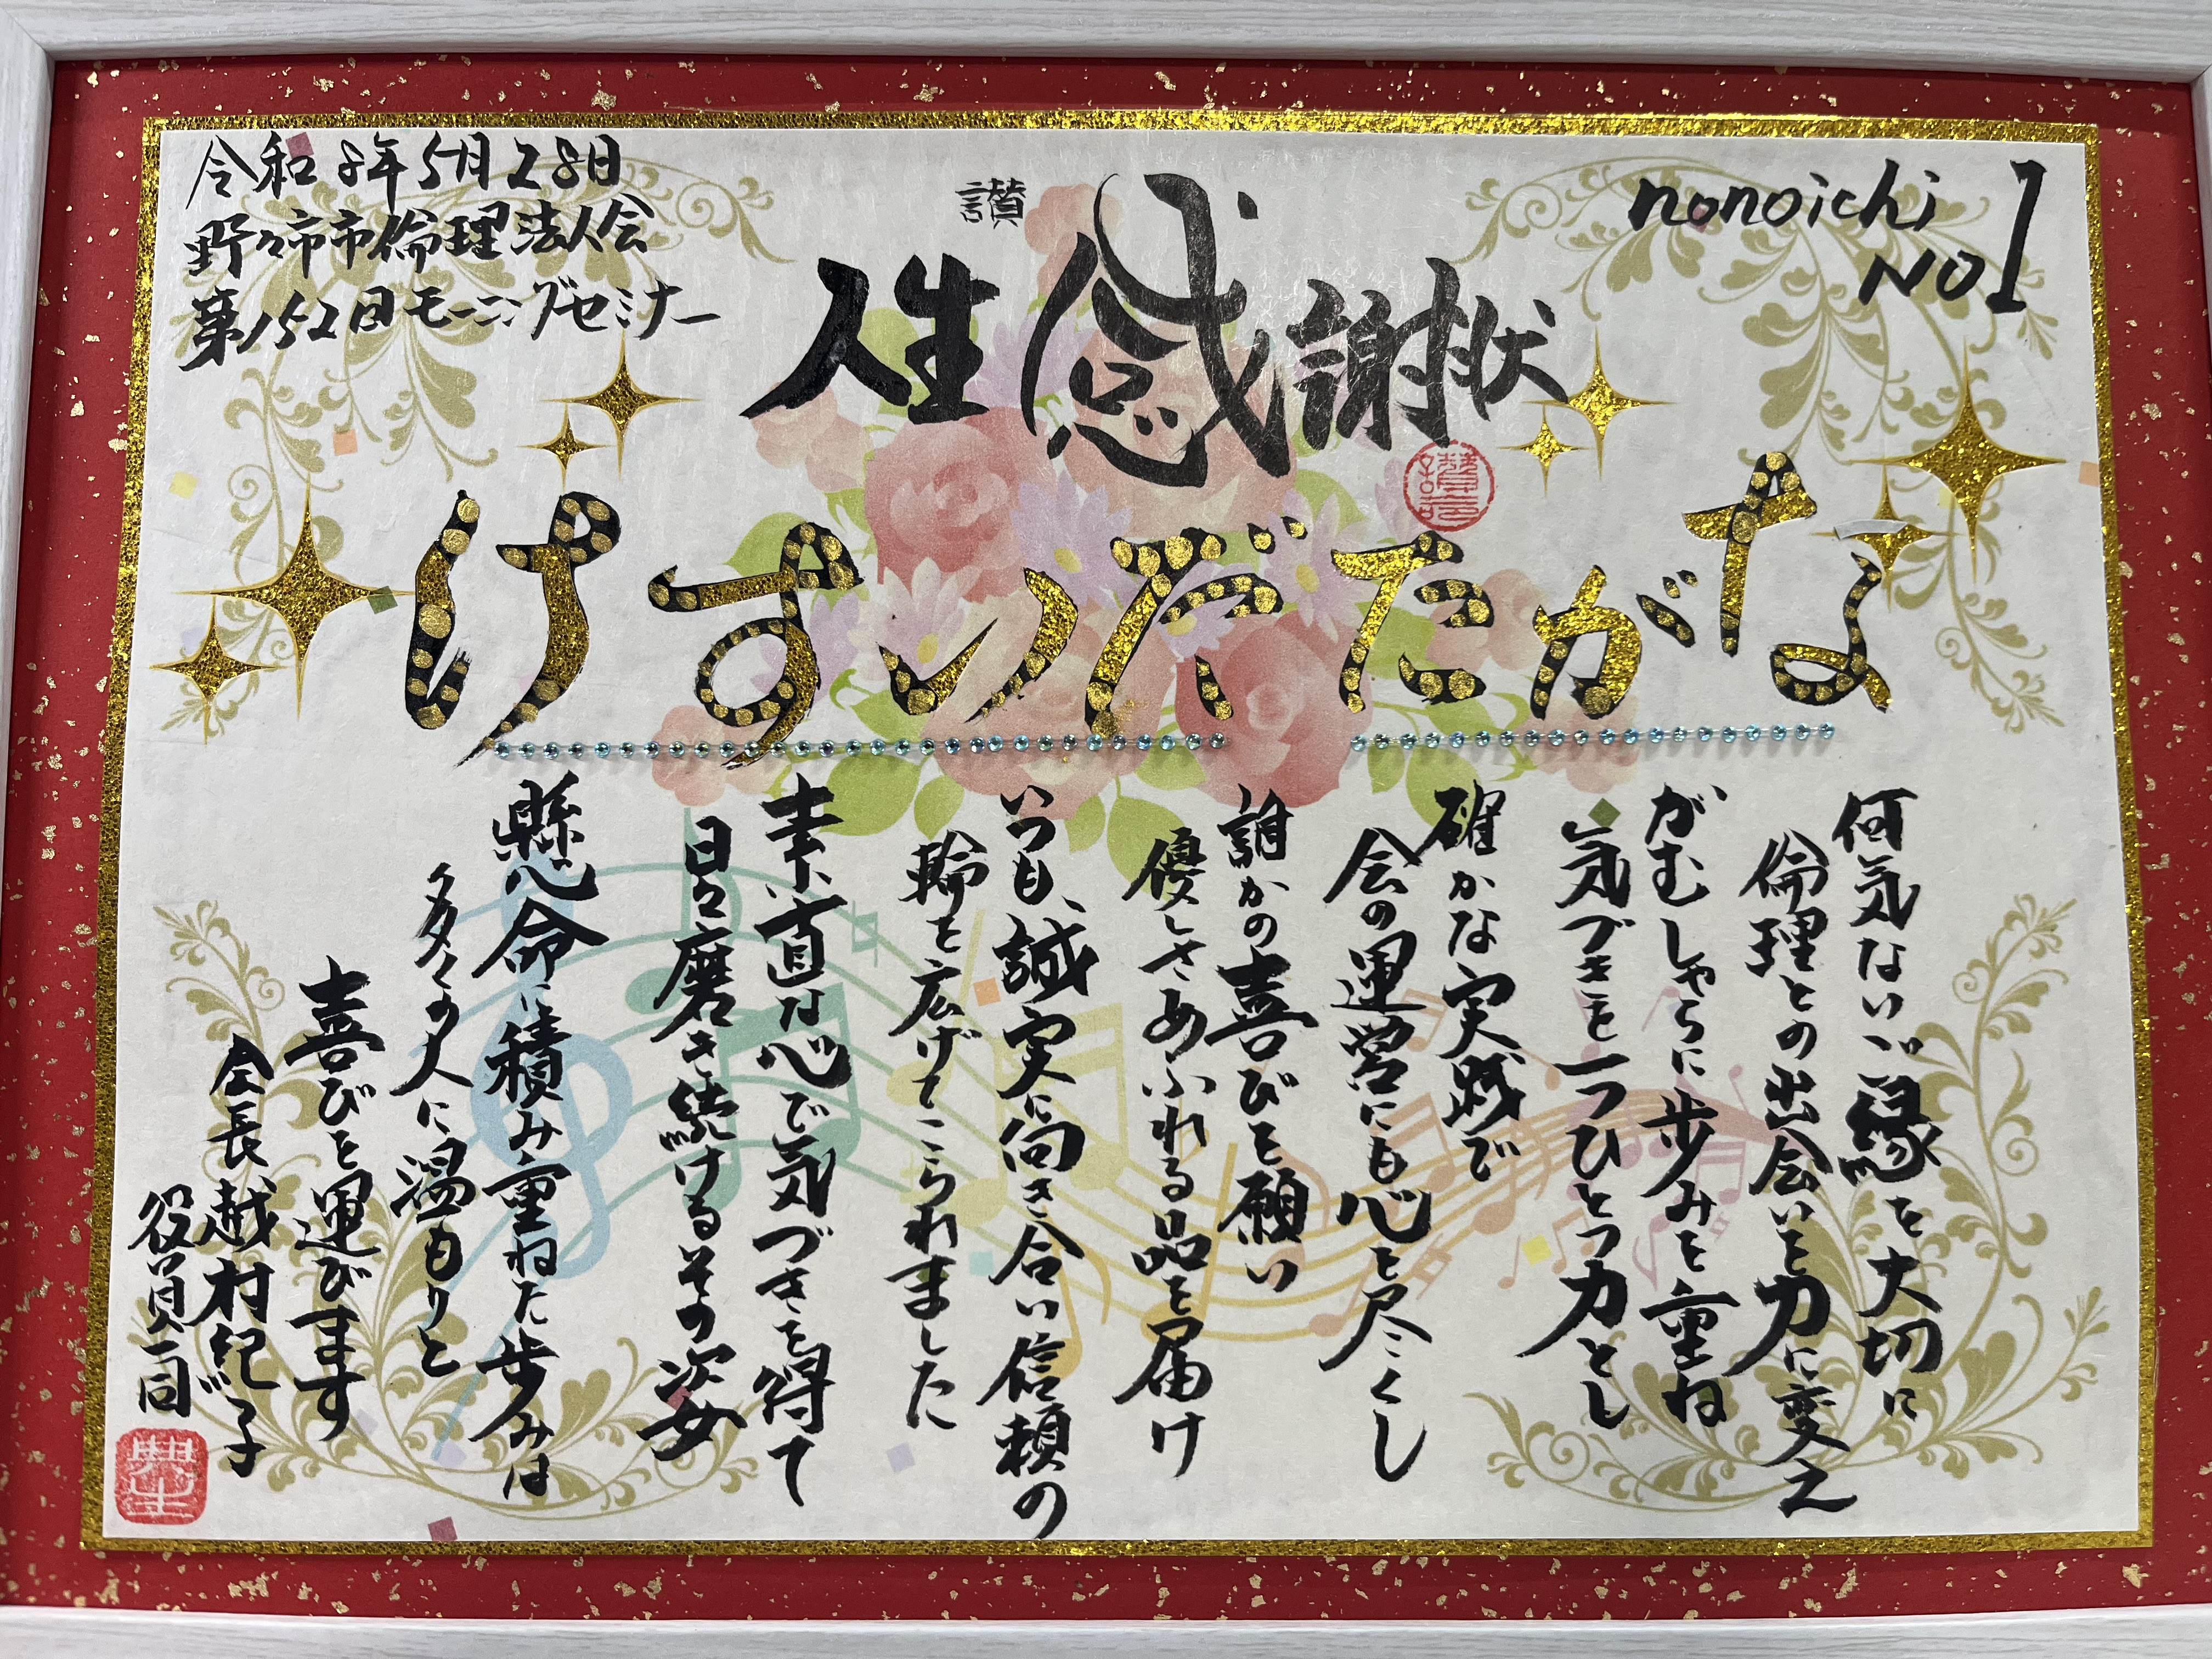 令和8年5月28日
野々市市倫理法人会
第152回モーニングセミナー
讃
人生感謝状
nonoichi
NO1
ながた だいすけ
何気ないご縁を大切に
倫理との出会いを力に変え
がむしゃらに歩みを重ね
気づきを一つひとつ力とし
確かな実践で
会の運営にも心を尽くし
誰かの喜びを願い
優しさあふれる品を届け
いつも、誠実に向き合い信頼の
輪を広げてこられました
素直な心で気づきを得て
日々磨き続けるその姿
懸命に積み重ねた歩みは
多くの人に温もりと
喜びを運びます
会長 越村
役員一同